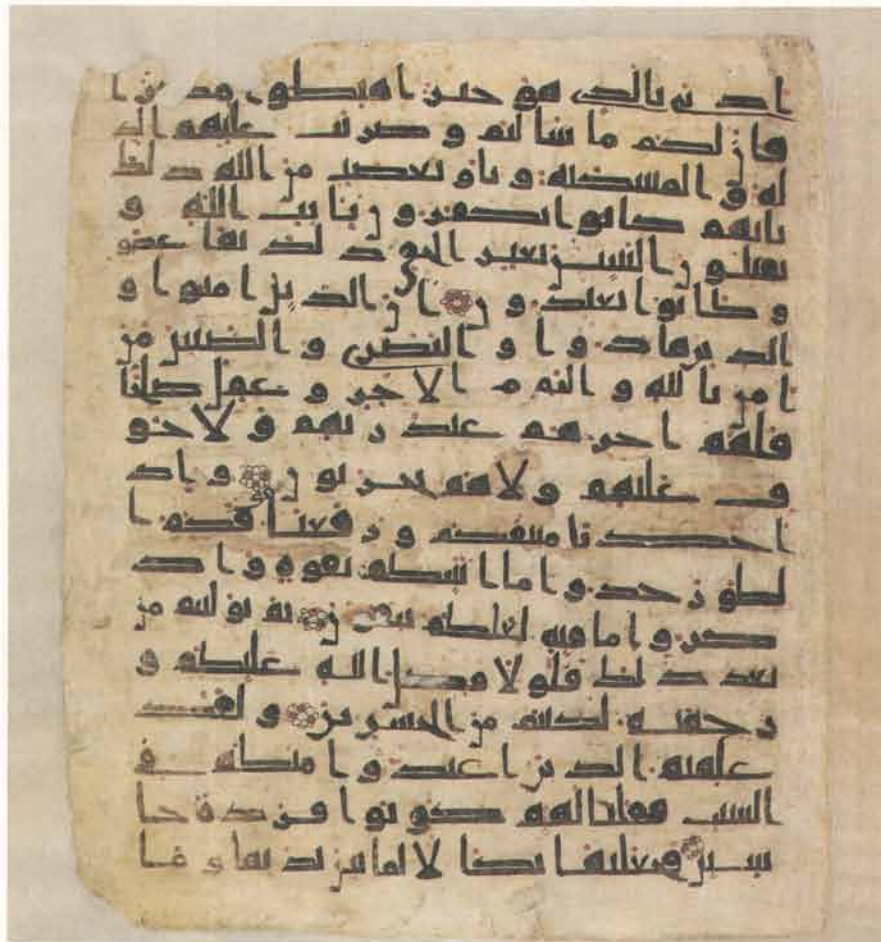 ادنى بالذى هو خير اهبطوا مصرا
فان لكم ما سالتم و ضربت عليهم الذ
لة و المسكنة و باو بغضب من الله ذلك
بانهم كانوا يكفرون بايت الله و
يقتلون النبين بغير الحق ذلك بما عصو
و كانوا يعتدون ان الذين امنوا و
الذين هادوا و النصرى و الصبين من
امن بالله و اليوم الاخر و عمل صلحا
فلهم اجرهم عند ربهم و لا خو
ف عليهم ولا هم يحزنون واذ
اخذنا ميثقكم و رفعنا فوقكم ا
لطور خذوا ما اتينكم بقوة و اذ
كروا ما فيه لعلكم تتقون ثم توليتم من
بعد ذلك فلولا فضل الله عليكم و
رحمته لكنتم من الخسرين و لقد
علمتم الذين اعتدوا منكم فى
السبت فقلنا لهم كونوا قردة خا
سين فجعلنها نكلا لما بين يديها و ما